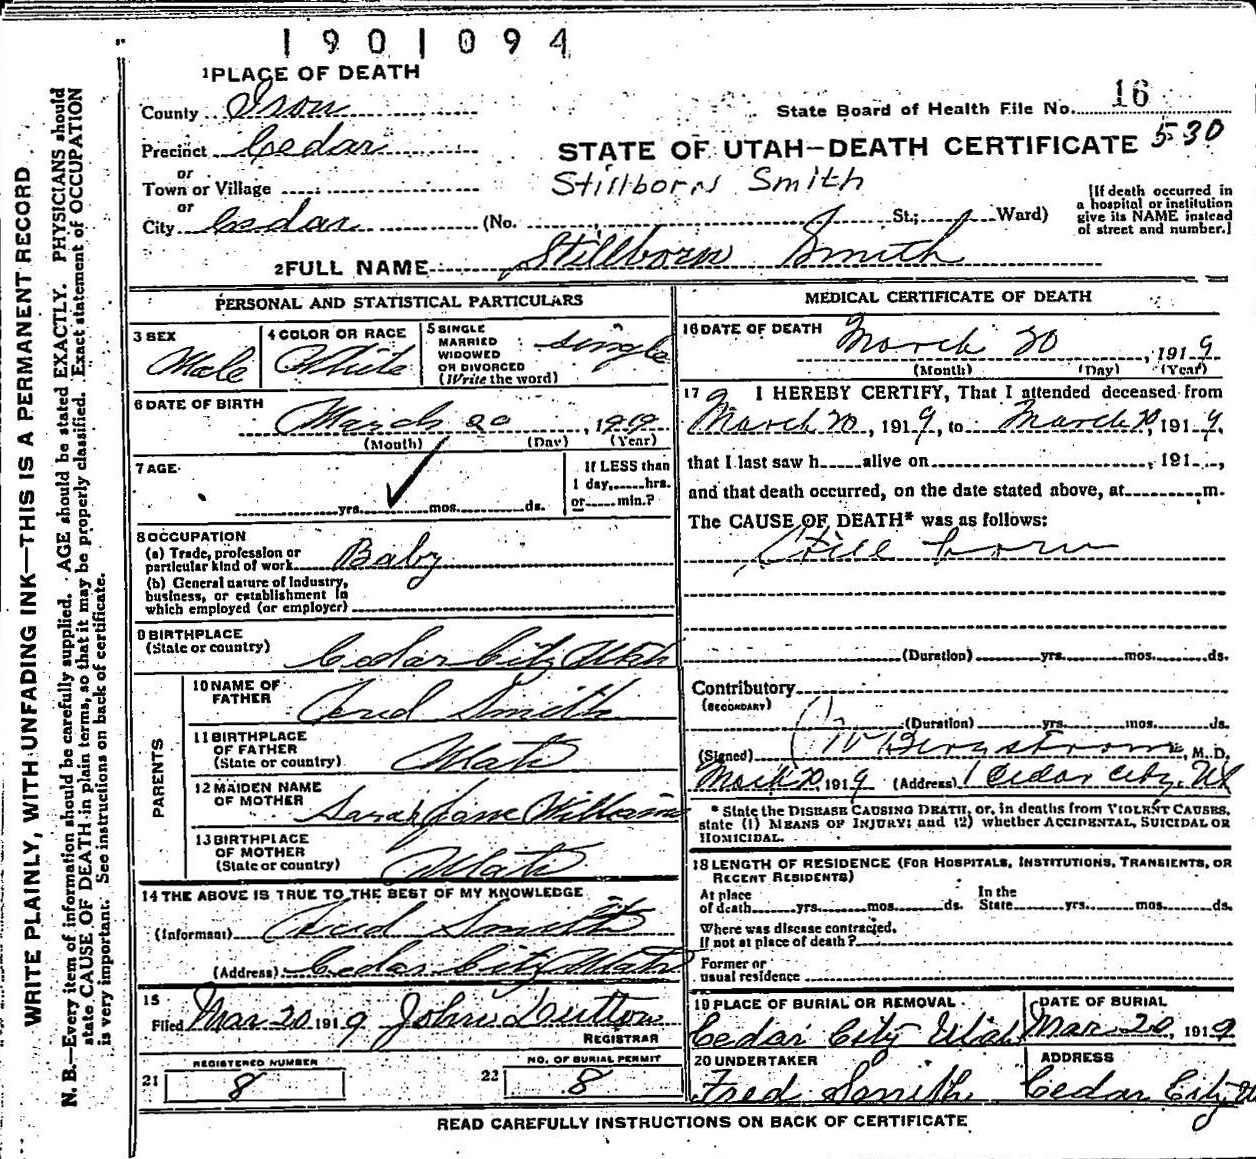 1901094
1 PLACE OF DEATH
County Iron
State Board of Health File No. 16
Precinct Cedar
STATE OF UTAH—DEATH CERTIFICATE 530
or
Town or Village
Stillborn Smith
or
City Cedar (No. St.; Ward)
[If death occurred in
a hospital or institution
give its NAME instead
of street and number.]
2 FULL NAME Stillborn Smith
PERSONAL AND STATISTICAL PARTICULARS
3 SEX
Male
4 COLOR OR RACE
White
5 SINGLE
MARRIED
WIDOWED
OR DIVORCED
(Write the word)
Single
6 DATE OF BIRTH
March 20, 1919
(Month) (Day) (Year)
7 AGE
yrs. mos. ds.
If LESS than
1 day, hrs.
or min.?
8 OCCUPATION
(a) Trade, profession or
particular kind of work Baby
(b) General nature of Industry,
business, or establishment in
which employed (or employer)
9 BIRTHPLACE
(State or country) Cedar City Utah
PARENTS
10 NAME OF
FATHER Fred Smith
11 BIRTHPLACE
OF FATHER
(State or country) Utah
12 MAIDEN NAME
OF MOTHER Sarah Jane Williams
13 BIRTHPLACE
OF MOTHER
(State or country) Utah
14 THE ABOVE IS TRUE TO THE BEST OF MY KNOWLEDGE
(Informant) Fred Smith
(Address) Cedar City Utah
15
Filed Mar 20 1919 John
REGISTRAR
REGISTERED NUMBER
21 8
NO. OF BURIAL PERMIT
22 8
MEDICAL CERTIFICATE OF DEATH
16 DATE OF DEATH
March 20, 1919
(Month) (Day) (Year)
17 I HEREBY CERTIFY, That I attended deceased from
March 20, 1919, to March 20, 1919,
that I last saw h alive on , 191 ,
and that death occurred, on the date stated above, at m.
The CAUSE OF DEATH* was as follows:
Still born
(Duration) yrs. mos. ds.
Contributory
(SECONDARY)
(Duration) yrs. mos. ds.
(Signed) Bergstrom, M. D.
March 20, 1919 (Address) Cedar City, Ut
* State the DISEASE CAUSING DEATH, or, in deaths from VIOLENT CAUSES,
state (1) MEANS OF INJURY; and (2) whether ACCIDENTAL, SUICIDAL OR
HOMICIDAL.
18 LENGTH OF RESIDENCE (FOR HOSPITALS, INSTITUTIONS, TRANSIENTS, OR
RECENT RESIDENTS)
At place
of death yrs. mos. ds.
In the
State yrs. mos. ds.
Where was disease contracted,
If not at place of death?
Former or
usual residence
19 PLACE OF BURIAL OR REMOVAL
Cedar City Utah
DATE OF BURIAL
Mar. 20, 1919
20 UNDERTAKER
Fred Smith
ADDRESS
Cedar City U
READ CAREFULLY INSTRUCTIONS ON BACK OF CERTIFICATE
WRITE PLAINLY, WITH UNFADING INK—THIS IS A PERMANENT RECORD
N. B.—Every item of information should be carefully supplied. AGE should be stated EXACTLY. PHYSICIANS should
state CAUSE OF DEATH in plain terms, so that it may be properly classified. Exact statement of OCCUPATION
is very important. See instructions on back of certificate.